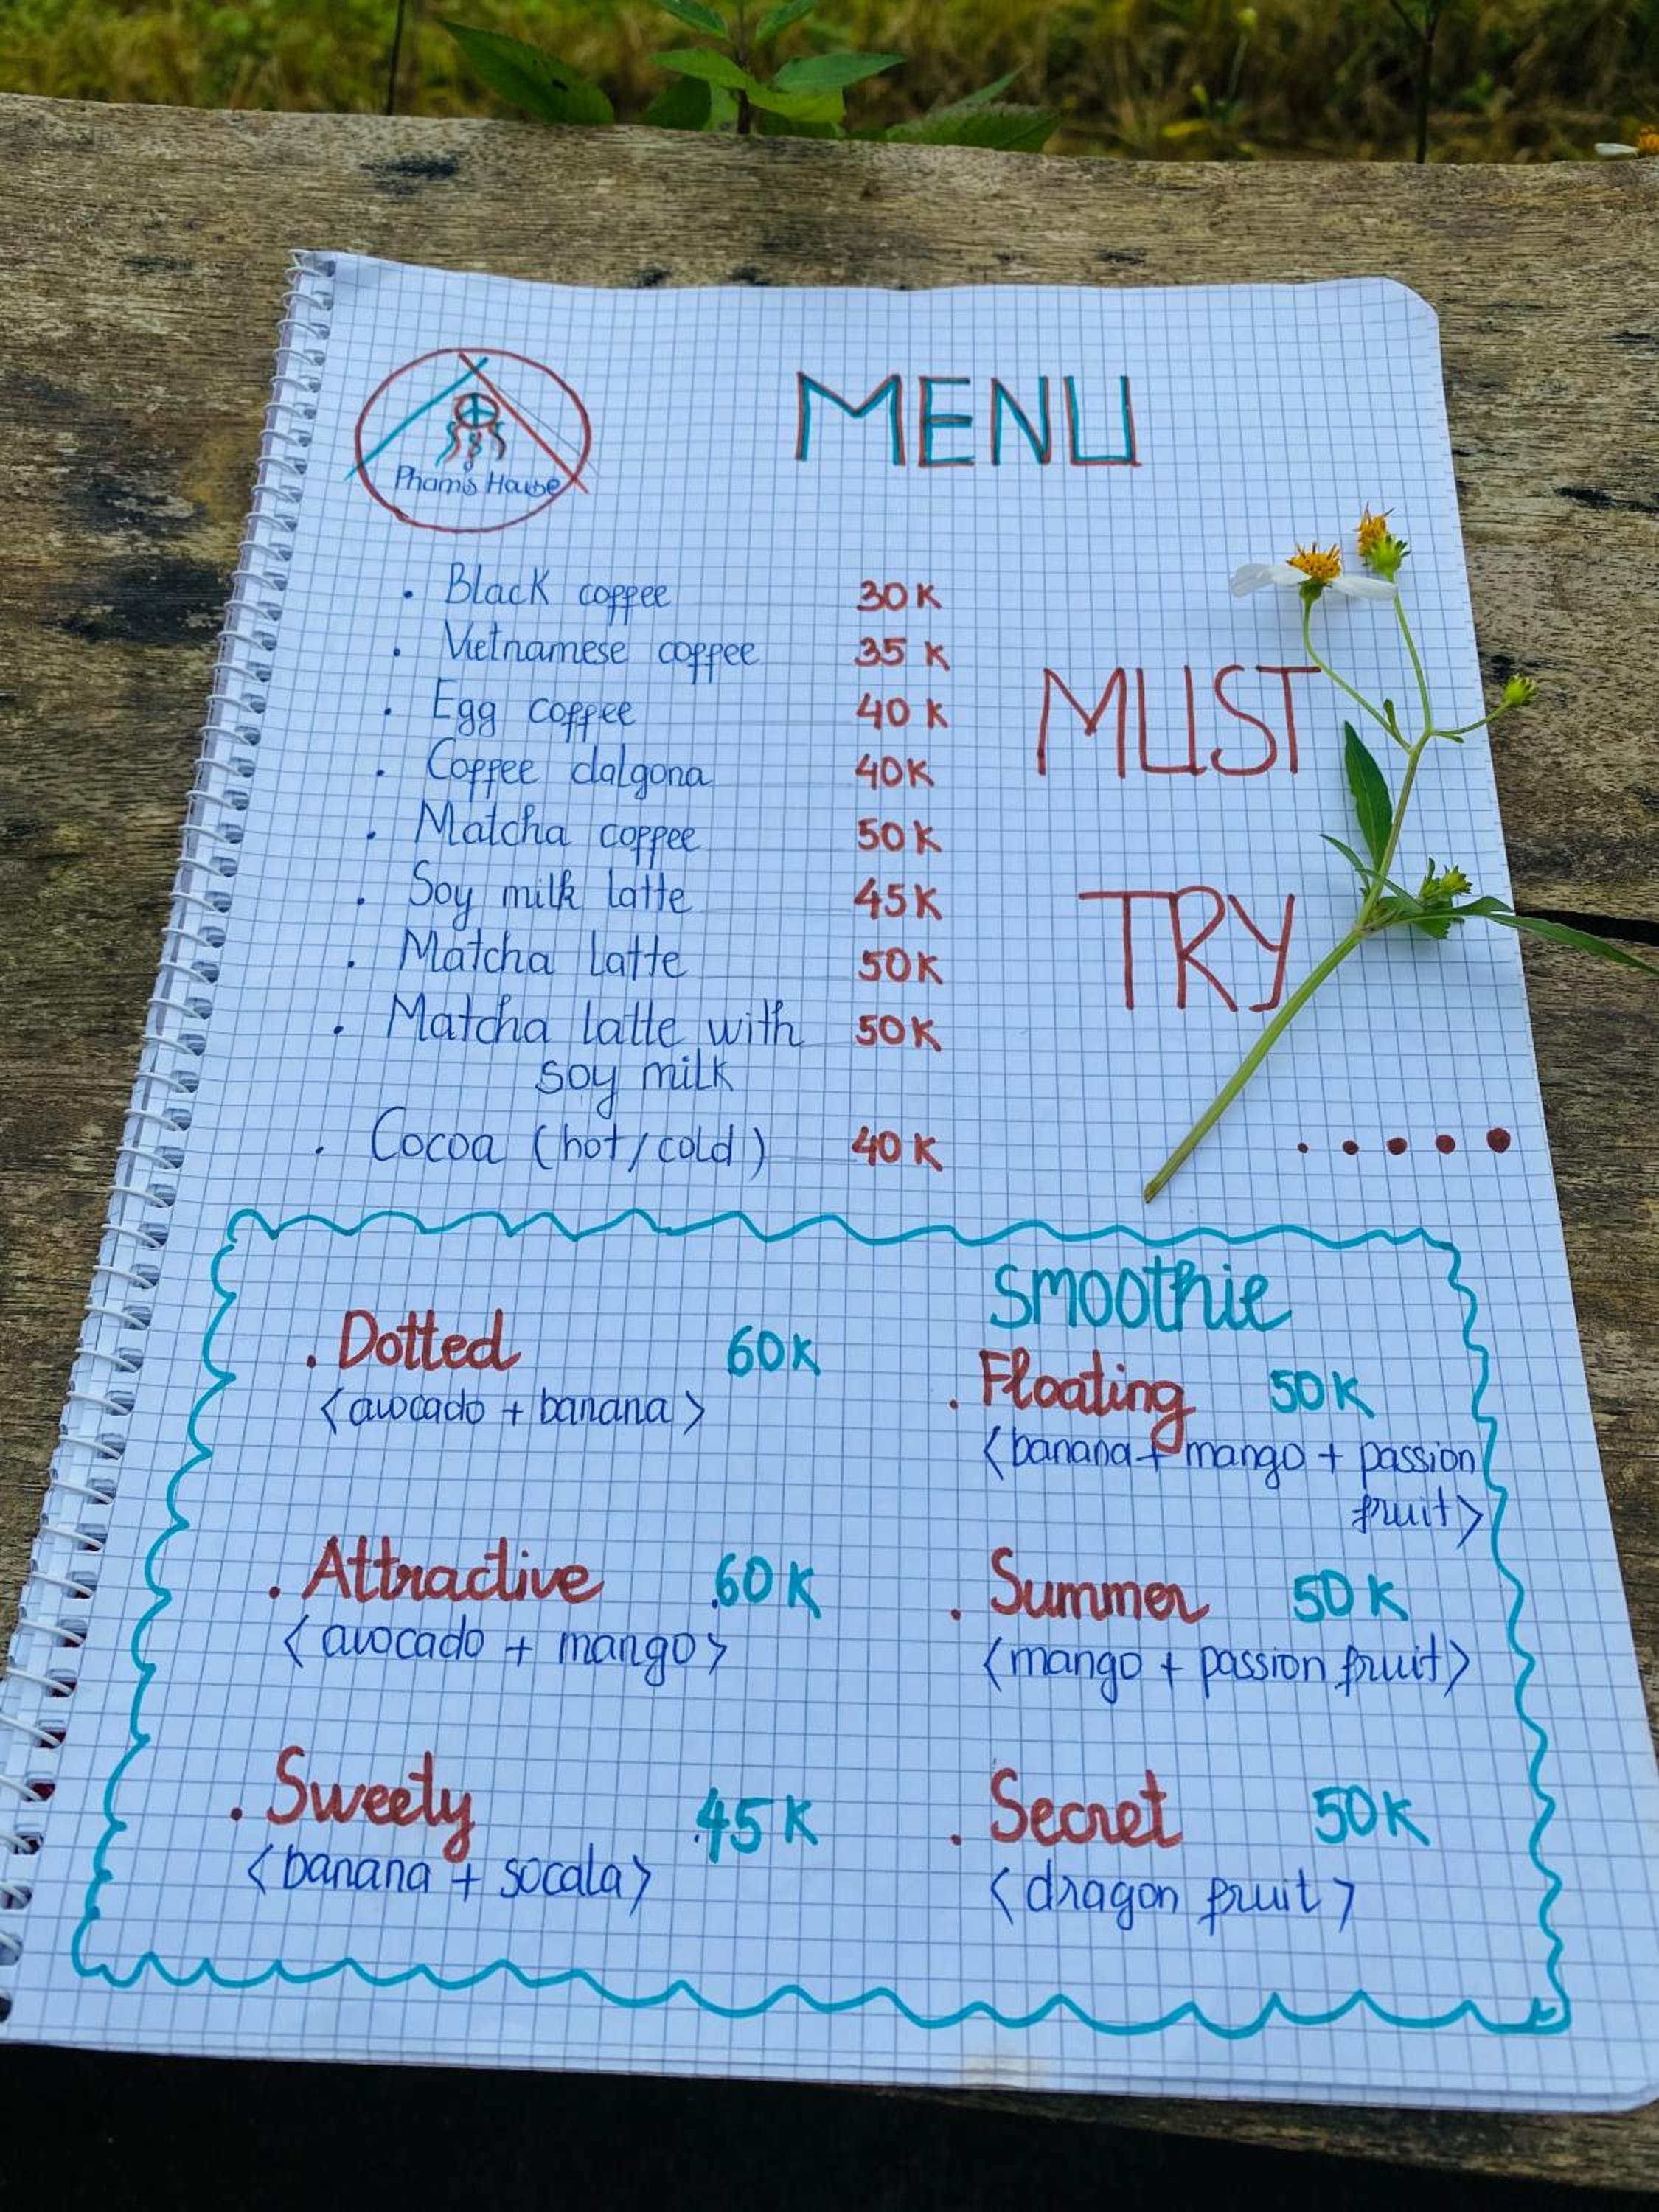 MENU
Pham's House
. Black coffee 30K
. Vietnamese coffee 35K
. Egg coffee 40K
. Coffee dalgona 40K
. Matcha coffee 50K
. Soy milk latte 45K
. Matcha latte 50K
. Matcha latte with 50K
soy milk
. Cocoa (hot/cold) 40K
MUST
TRY
.....
Smoothie
. Dotted 60K
<avocado + banana>
. Attractive 60K
<avocado + mango>
. Sweety 45K
<banana + socala>
. Floating 50K
<banana + mango + passion
fruit>
. Summer 50K
<mango + passion fruit>
. Secret 50K
<dragon fruit>